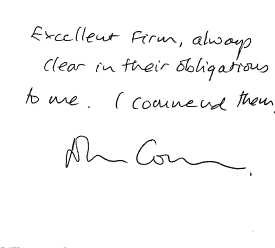 Excellent Firm, always
clear in their obligations
to me. I commend them